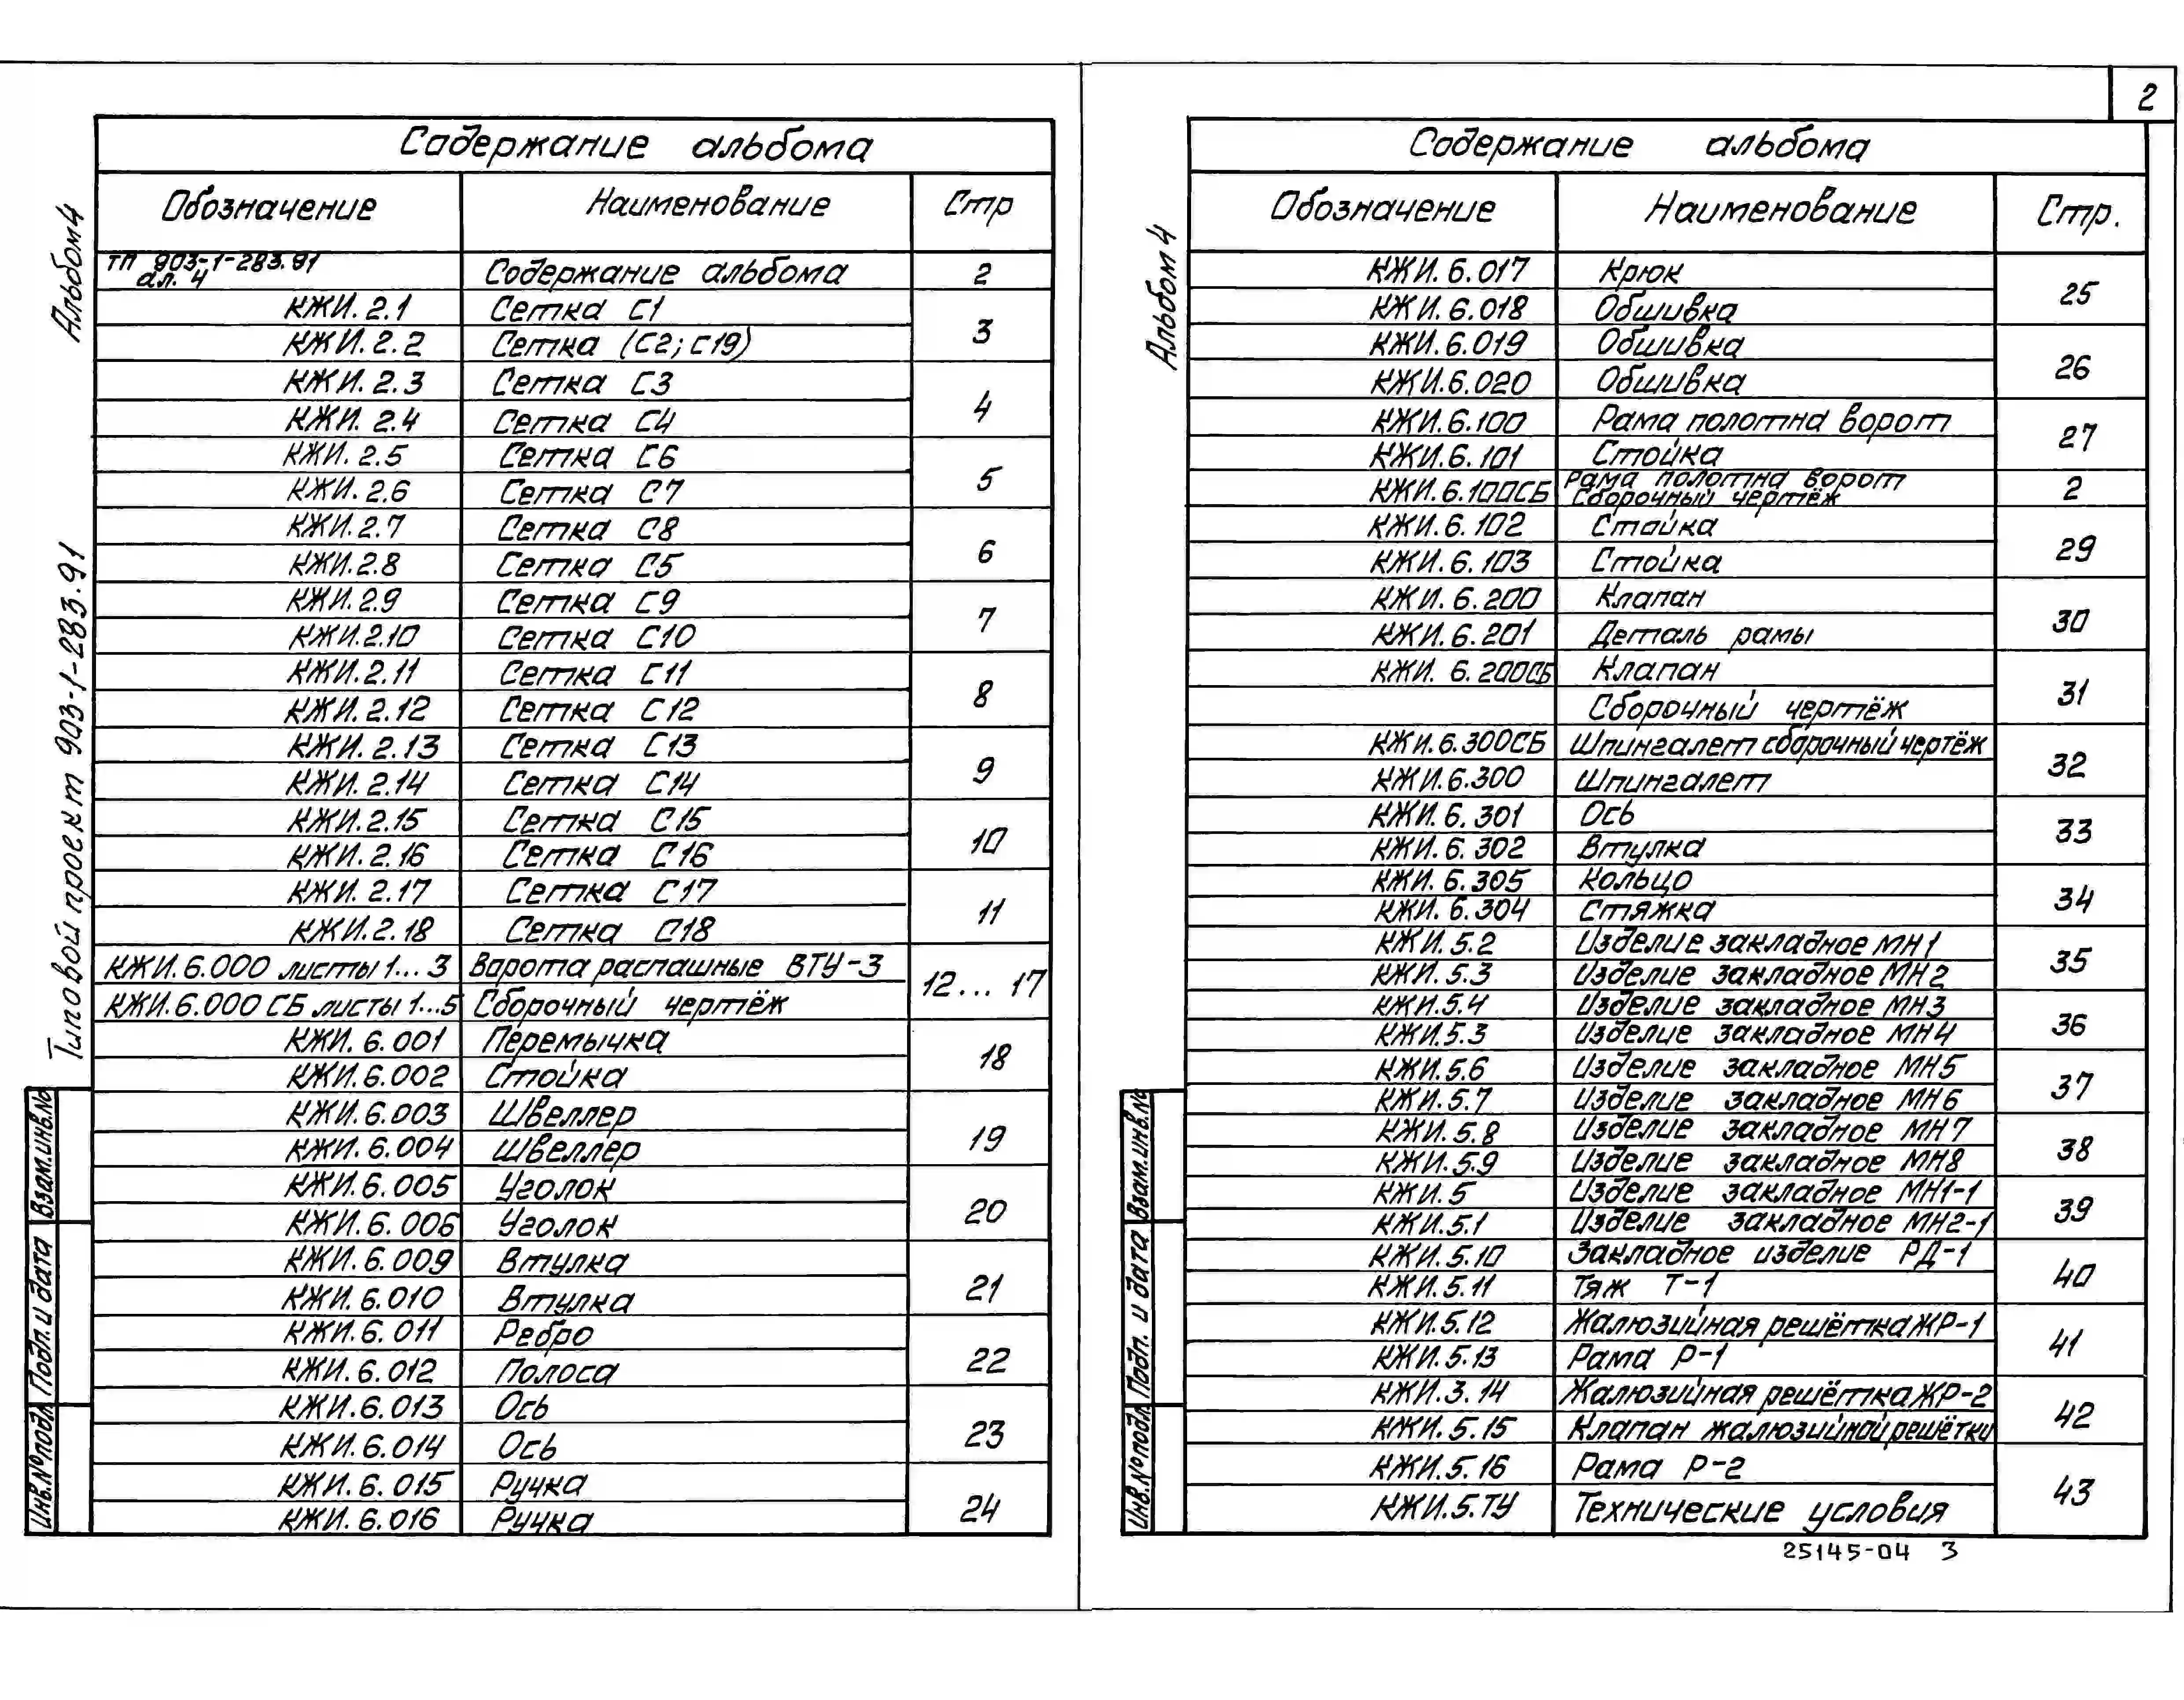 2
Альбом 4
Типовой проект 903-1-283.91
Взам.инв.№
Подп. и дата
Инв.№ подл.
Содержание альбома
Обозначение Наименование Стр
ТП 903-1-283.91
ал. 4 Содержание альбома 2
КЖИ.2.1 Сетка С1
3
КЖИ.2.2 Сетка (С2; С19)
КЖИ.2.3 Сетка С3
4
КЖИ.2.4 Сетка С4
КЖИ.2.5 Сетка С6
5
КЖИ.2.6 Сетка С7
КЖИ.2.7 Сетка С8
6
КЖИ.2.8 Сетка С5
КЖИ.2.9 Сетка С9
7
КЖИ.2.10 Сетка С10
КЖИ.2.11 Сетка С11
8
КЖИ.2.12 Сетка С12
КЖИ.2.13 Сетка С13
9
КЖИ.2.14 Сетка С14
КЖИ.2.15 Сетка С15
10
КЖИ.2.16 Сетка С16
КЖИ.2.17 Сетка С17
11
КЖИ.2.18 Сетка С18
КЖИ.6.000 листы 1...3 Ворота распашные ВТУ-3
12... 17
КЖИ.6.000 СБ листы 1...5 Сборочный чертёж
КЖИ.6.001 Перемычка
18
КЖИ.6.002 Стойка
КЖИ.6.003 Швеллер
19
КЖИ.6.004 Швеллер
КЖИ.6.005 Уголок
20
КЖИ.6.006 Уголок
КЖИ.6.009 Втулка
21
КЖИ.6.010 Втулка
КЖИ.6.011 Ребро
22
КЖИ.6.012 Полоса
КЖИ.6.013 Ось
23
КЖИ.6.014 Ось
КЖИ.6.015 Ручка
24
КЖИ.6.016 Ручка
Альбом 4
Взам.инв.№
Подп. и дата
Инв.№ подл.
Содержание альбома
Обозначение Наименование Стр.
КЖИ.6.017 Крюк
25
КЖИ.6.018 Обшивка
КЖИ.6.019 Обшивка
26
КЖИ.6.020 Обшивка
КЖИ.6.100 Рама полотна ворот
27
КЖИ.6.101 Стойка
КЖИ.6.100СБ Рама полотна ворот 2
Сборочный чертёж
КЖИ.6.102 Стойка
29
КЖИ.6.103 Стойка
КЖИ.6.200 Клапан
30
КЖИ.6.201 Деталь рамы
КЖИ.6.200СБ Клапан
31
Сборочный чертёж
КЖИ.6.300СБ Шпингалет сборочный чертёж
32
КЖИ.6.300 Шпингалет
КЖИ.6.301 Ось
33
КЖИ.6.302 Втулка
КЖИ.6.305 Кольцо
34
КЖИ.6.304 Стяжка
КЖИ.5.2 Изделие закладное МН1
35
КЖИ.5.3 Изделие закладное МН2
КЖИ.5.4 Изделие закладное МН3
36
КЖИ.5.3 Изделие закладное МН4
КЖИ.5.6 Изделие закладное МН5
37
КЖИ.5.7 Изделие закладное МН6
КЖИ.5.8 Изделие закладное МН7
38
КЖИ.5.9 Изделие закладное МН8
КЖИ.5 Изделие закладное МН1-1
39
КЖИ.5.1 Изделие закладное МН2-1
КЖИ.5.10 Закладное изделие РД-1
40
КЖИ.5.11 Тяж Т-1
КЖИ.5.12 Жалюзийная решётка ЖР-1
41
КЖИ.5.13 Рама Р-1
КЖИ.3.14 Жалюзийная решётка ЖР-2
42
КЖИ.5.15 Клапан жалюзийной решётки
КЖИ.5.16 Рама Р-2
43
КЖИ.5.ТУ Технические условия
25145-04 3